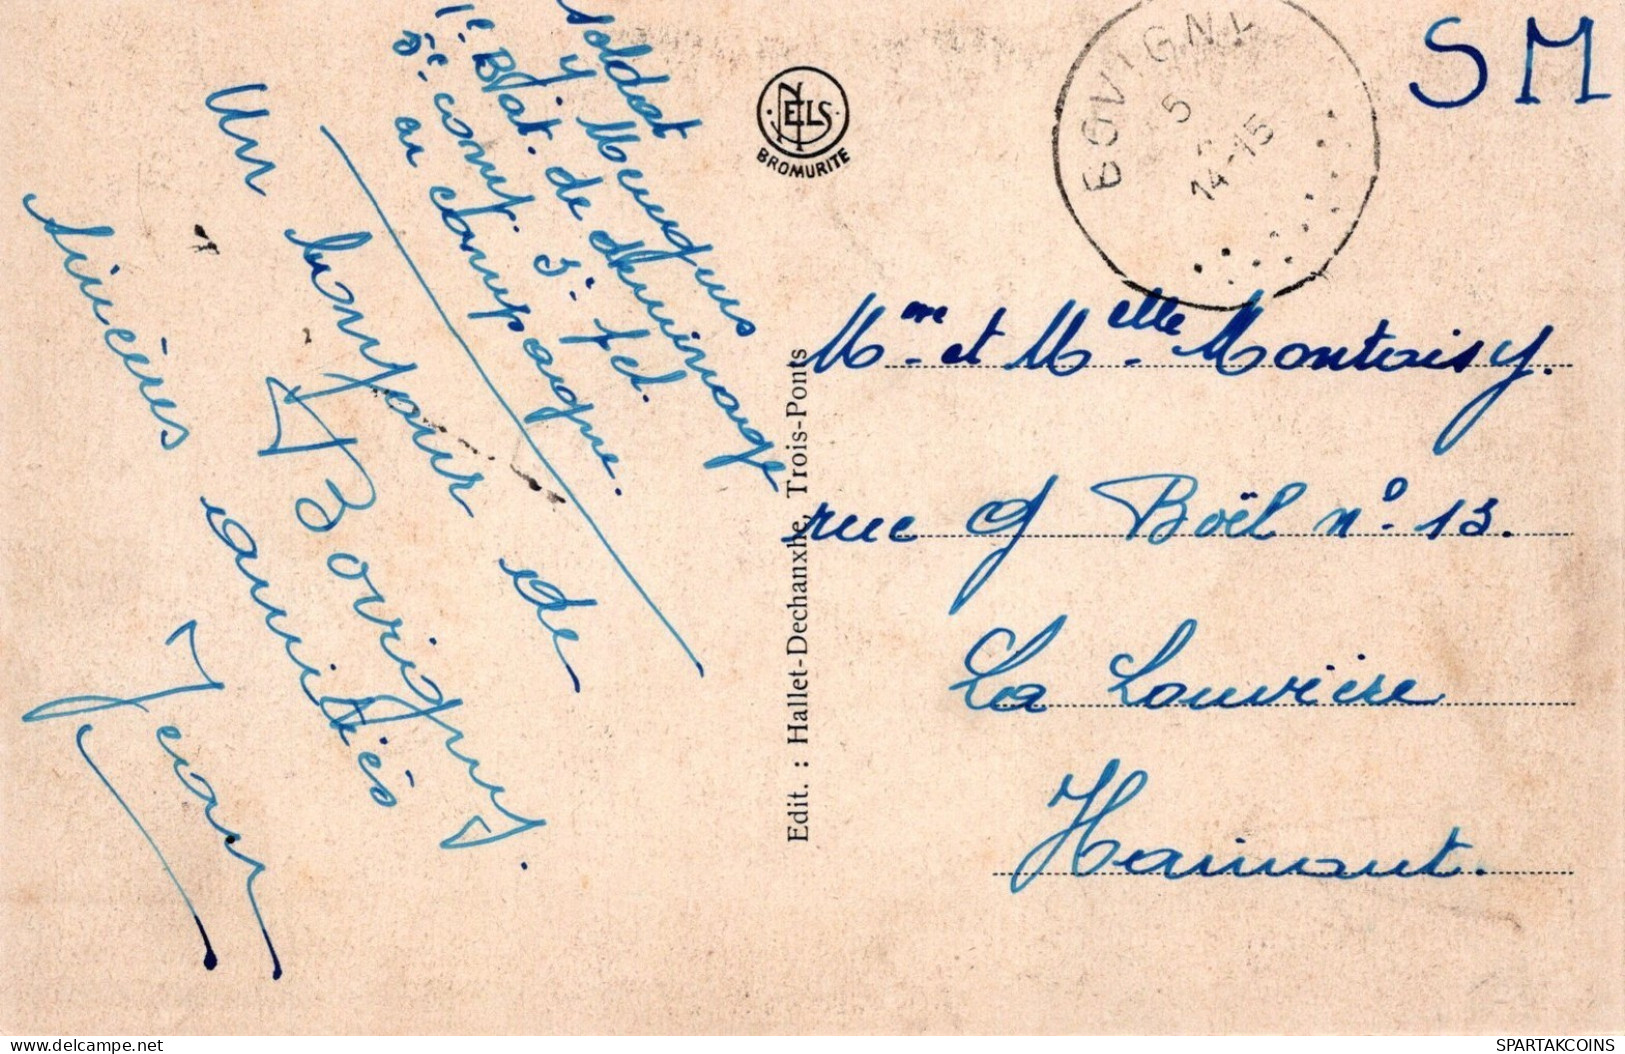 soldat
y Meurquus
1e Bat. de déminage
5e comt. 3e pel.
en campagne.
Un bonjour de
Bovigny.
Sincères amitiés
Jean
NELS
BROMURITE
Edit. : Hallet-Dechanxhe, Trois-Ponts
BOVIGNY
5
14-15
SM
Mme et Melle Montoisy.
rue G Boël n° 13.
La Louvière
Hainaut.
delcampe.net
SPARTAKCOINS